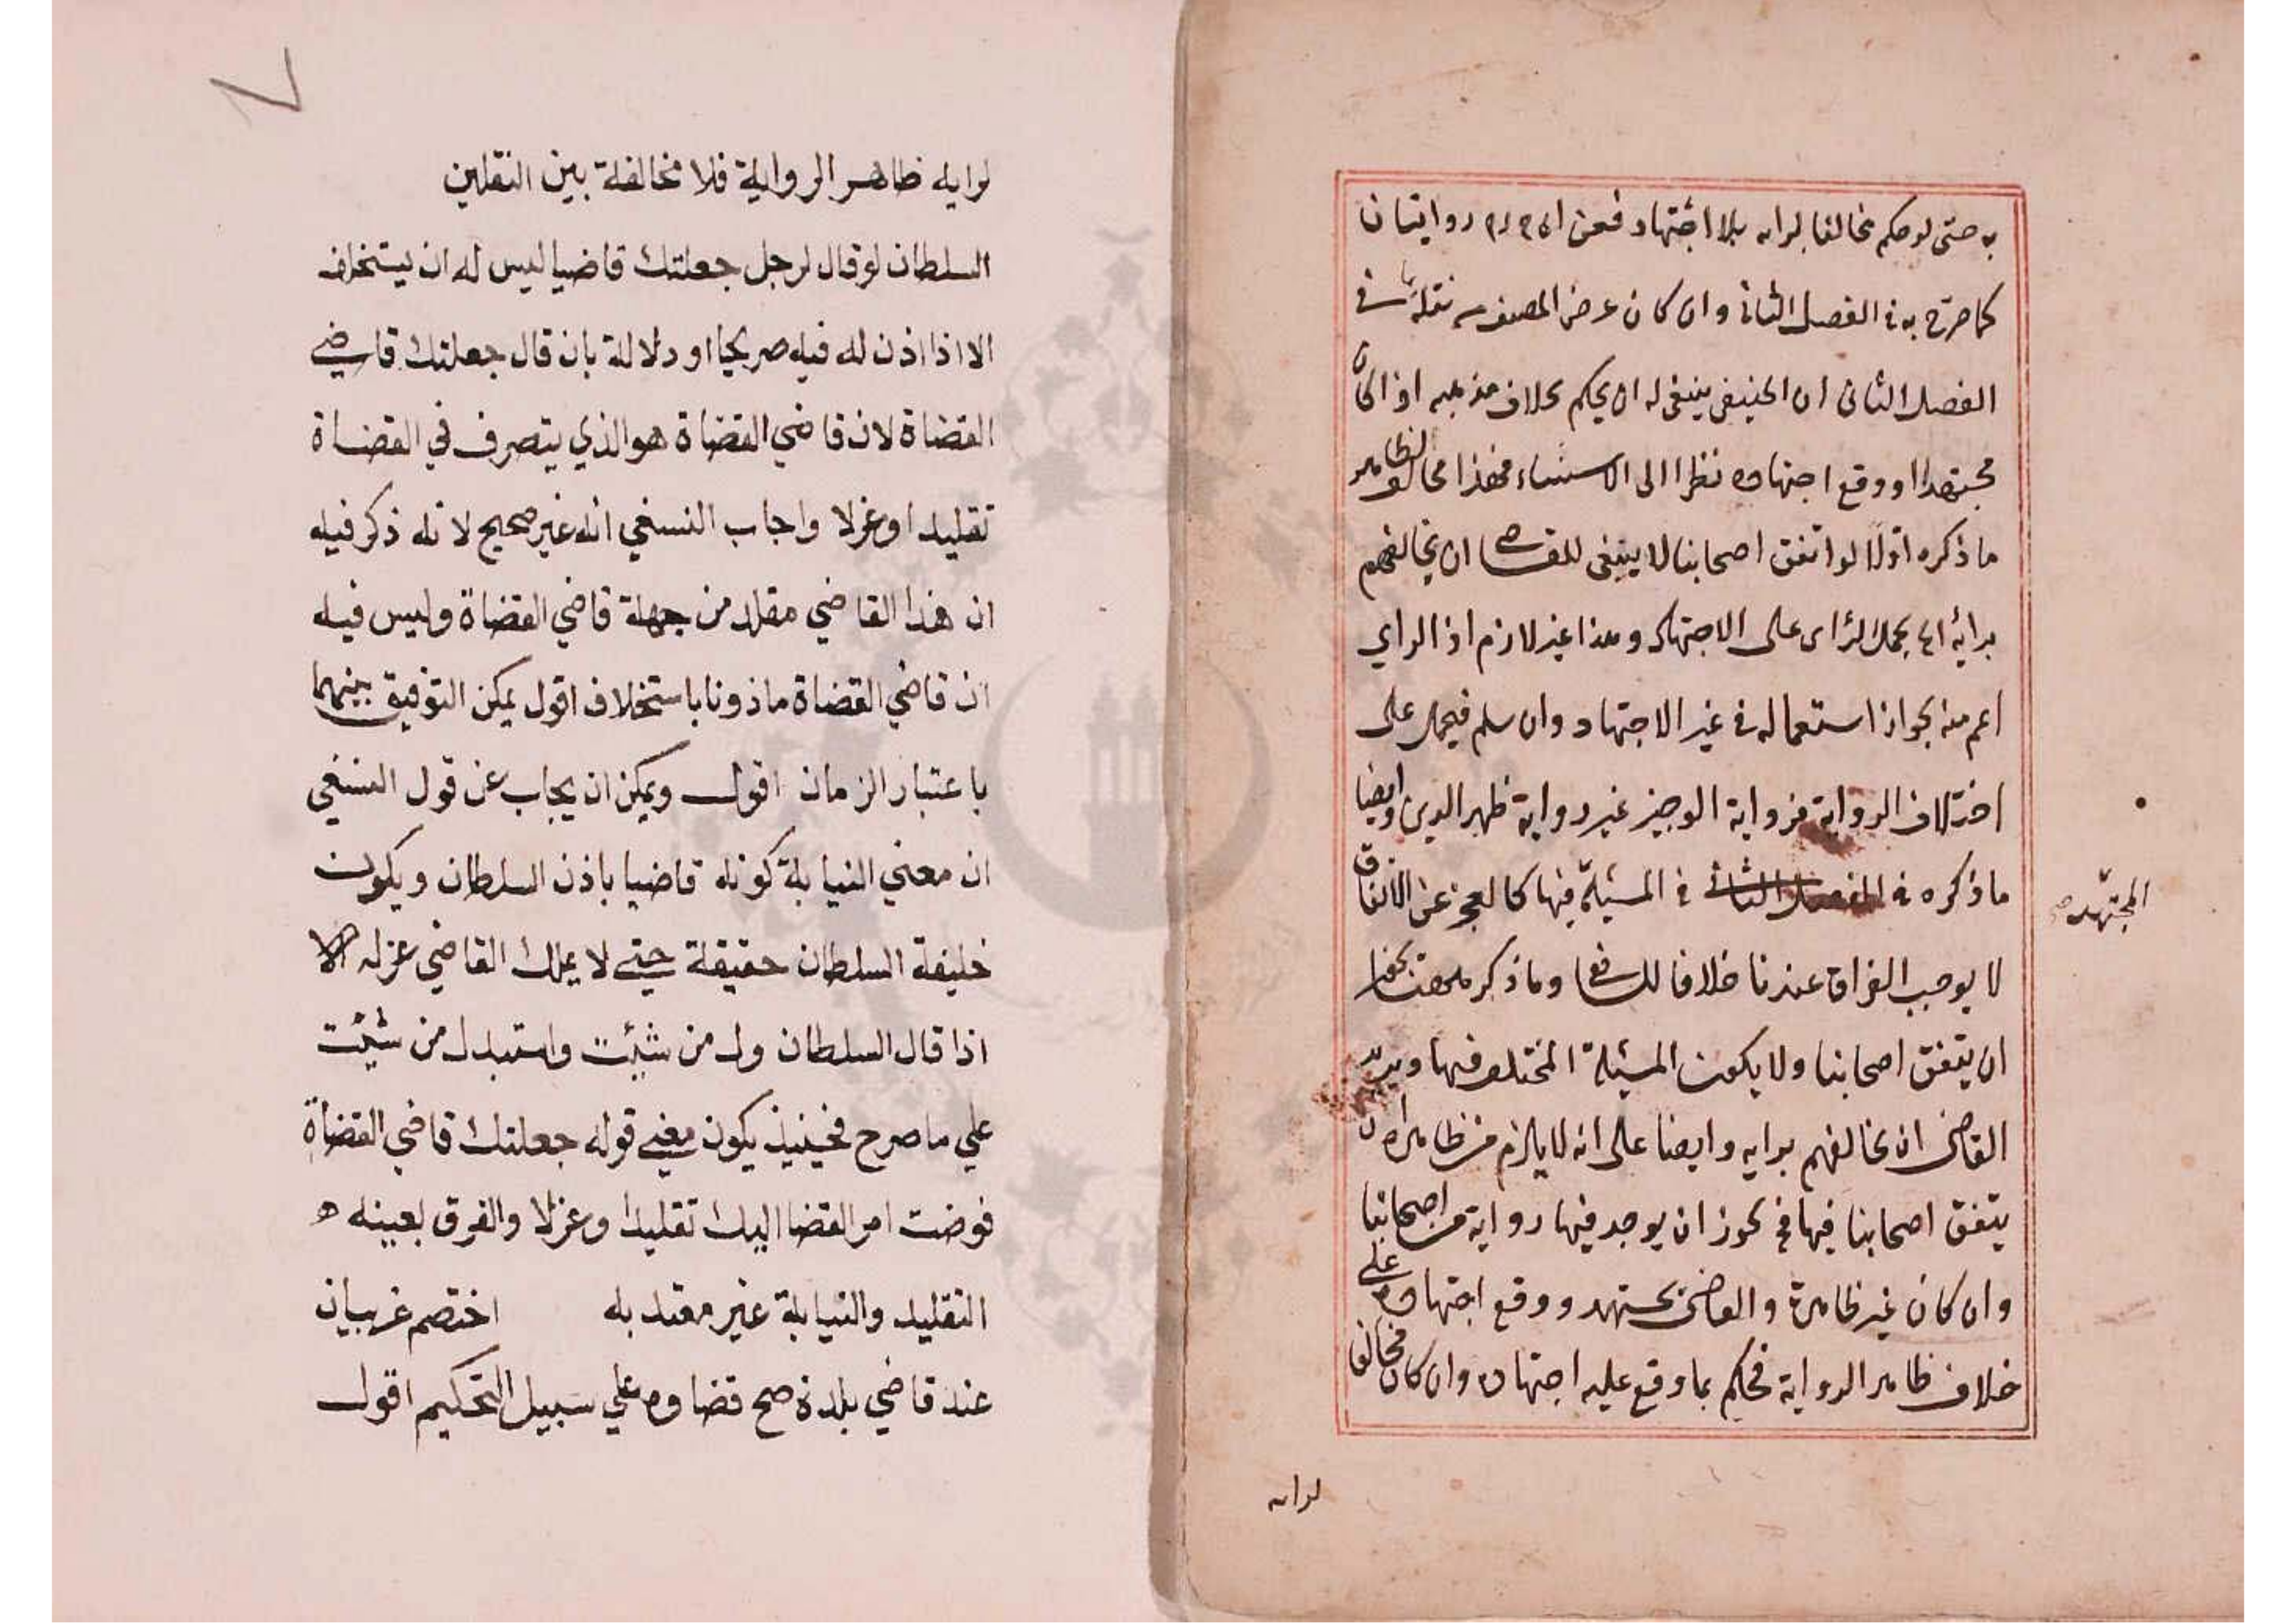 به حتى لو حكم مخالفا لرايه بلا اجتهاد فعن روايتان
كما صرّح به في الفصل الثاني وان كان غرض المصنف نقله في
الفصل الثاني ان الحنيفي ينبغي له ان يحكم بخلاف مذهبه اذا كان
مجتهدا ووقع اجتهاده نظرا الى الاستثناء فهذا مخالف لظاهر
ما ذكره اوّلا لو اتفق اصحابنا لا ينبغي للقاضي ان يخالفهم
برايه بحمل الراى على الاجتهاد وهذا غير لازم اذ الراي
اعم منه بجواز استعماله في غير الاجتهاد وان سلم فيحمل على
اختلاف الرواية فرواية الوجيز غير رواية ظهير الدين وايضا
ما ذكره في الفصل الثاني في المسئلة فيها كالعجز عن الانفاق
المجتهد
لا يوجب الفراق عندنا خلافا للشافعي وما ذكر
ان يتفق اصحابنا ولا يكون المسئلة المختلف فيها ويريد
القاضى ان يخالفهم برايه وايضا على انه لا يلزم من ظاهر ان
يتفق اصحابنا فيها فيجوز ان يوجد فيها رواية من اصحابنا
وان كان غير ظاهرة والقاضى مجتهد ووقع اجتهاده على
خلاف ظاهر الرواية فحكم بما وقع عليه اجتهاده وان كان مخالفا
لرايه
لرايه ظاهر الرواية فلا مخالفة بين النقلين
السلطان لو قال لرجل جعلتك قاضيا ليس له ان يستخلف
الا اذا اذن له فيه صريحا او دلالة بان قال جعلتك قاضي
القضاة لان قاضي القضاة هو الذي يتصرف في القضاة
تقليدا وعزلا واجاب النسفي انه غير صحيح لانه ذكر فيه
ان هذا القاضي مقلد من جهة قاضي القضاة وليس فيه
ان قاضي القضاة ماذونا باستخلاف اقول يمكن التوفيق بينهما
باعتبار الزمان اقول ويمكن ان يجاب عن قول النسفي
ان معني النيابة كونه قاضيا باذن السلطان ويكون
خليفة السلطان حقيقة حتي لا يملك القاضي عزله الا
اذا قال السلطان ول من شئت واستبدل من شئت
علي ما صرح فحينئذ يكون معني قوله جعلتك قاضي القضاة
فوضت امر القضا اليك تقليدا وعزلا والفرق بعينه
التقليد والنيابة غير معتد به اختصم غريبان
عند قاضي بلدة صح قضاوه علي سبيل التحكيم اقول